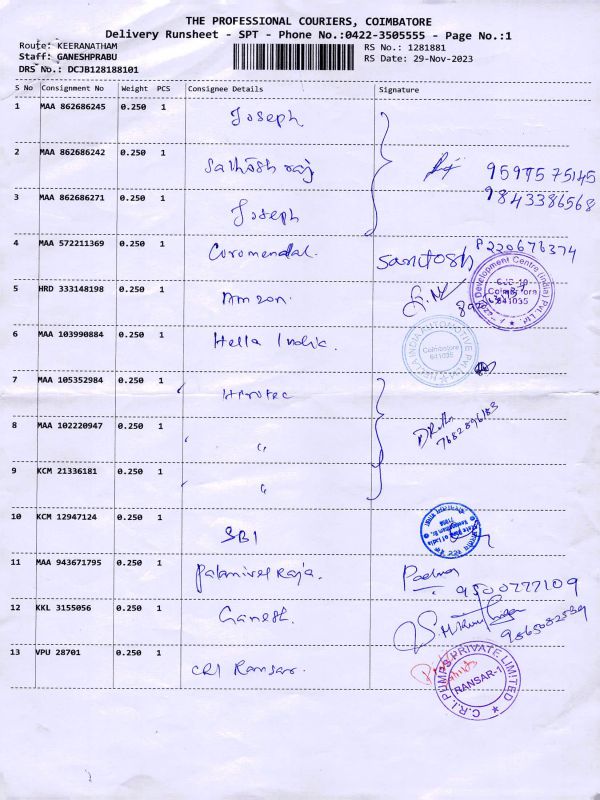 THE PROFESSIONAL COURIERS, COIMBATORE
Delivery Runsheet - SPT - Phone No.:0422-3505555 - Page No.:1
Route: KEERANATHAM RS No.: 1281881
Staff: GANESHPRABU RS Date: 29-Nov-2023
DRS No.: DCJB128188101
S No Consignment No Weight PCS Consignee Details Signature
1 MAA 862686245 0.250 1 Joseph
2 MAA 862686242 0.250 1 Sathosh raj 9597575145
9843386568
3 MAA 862686271 0.250 1 Joseph
4 MAA 572211369 0.250 1 Coromendal. Santosh P220676374
Development Centre (India) Pvt. Ltd.
Coimbatore
641035
5 HRD 333148198 0.250 1 Amzon.
6 MAA 103990884 0.250 1 Hella India.
HELLA INDIA AUTOMOTIVE PVT LTD
Coimbatore
641035
7 MAA 105352984 0.250 1
8 MAA 102220947 0.250 1 "
7682896183
9 KCM 21336181 0.250 1 "
10 KCM 12947124 0.250 1 SBI
State Bank of India
11 MAA 943671795 0.250 1 Palanivel Raja. Padma 9500777109
12 KKL 3155056 0.250 1 Ganesh.
13 VPU 28701 0.250 1 CRI Ransar.
C.R.I. PUMPS PRIVATE LIMITED
RANSAR-1